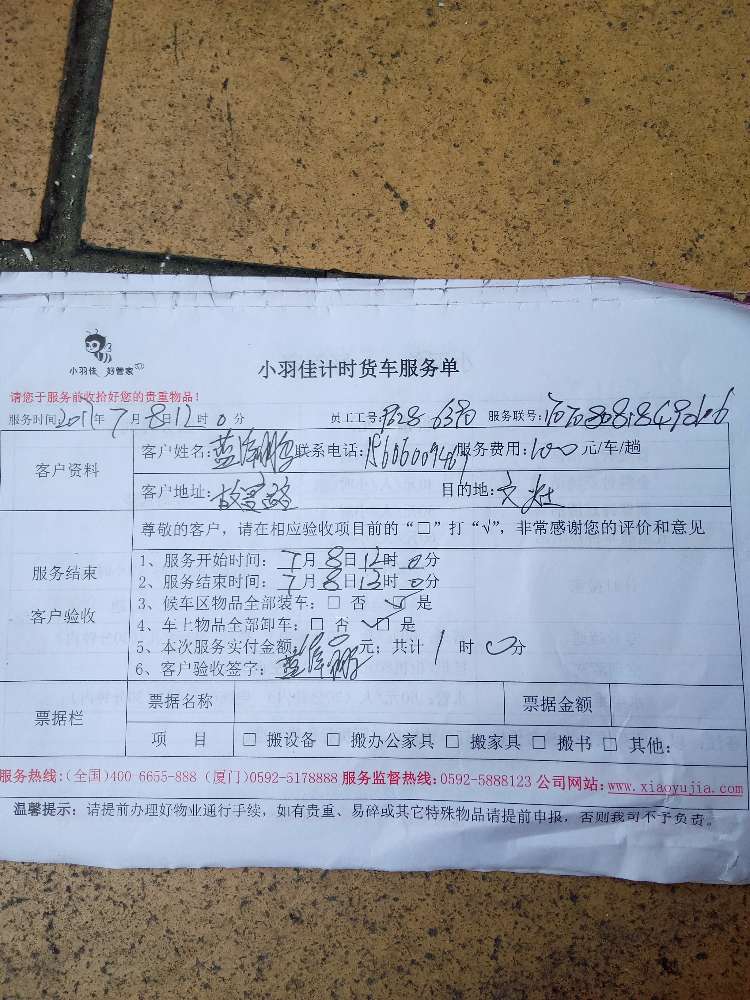 小羽佳 好管家
小羽佳计时货车服务单
请您于服务前收拾好您的贵重物品！
服务时间:2017年7月8日12时0分 员工工号: 服务联号:
客户资料
客户姓名:蓝 联系电话: 服务费用:100元/车/趟
客户地址:故宫路 目的地:文灶
服务结束
客户验收
尊敬的客户，请在相应验收项目前的“□”打“√”，非常感谢您的评价和意见
1、服务开始时间：7月8日12时0分
2、服务结束时间：7月8日13时0分
3、候车区物品全部装车：□ 否 ☑ 是
4、车上物品全部卸车：□ 否 ☑ 是
5、本次服务实付金额 元；共计 1 时 0 分
6、客户验收签字：蓝
票据栏
票据名称 票据金额
项 目 □ 搬设备 □ 搬办公家具 □ 搬家具 □ 搬书 □ 其他：
服务热线:(全国)400 6655-888 (厦门)0592-5178888 服务监督热线:0592-5888123 公司网站:www.xiaoyujia.com
温馨提示：请提前办理好物业通行手续，如有贵重、易碎或其它特殊物品请提前申报，否则我司不予负责。